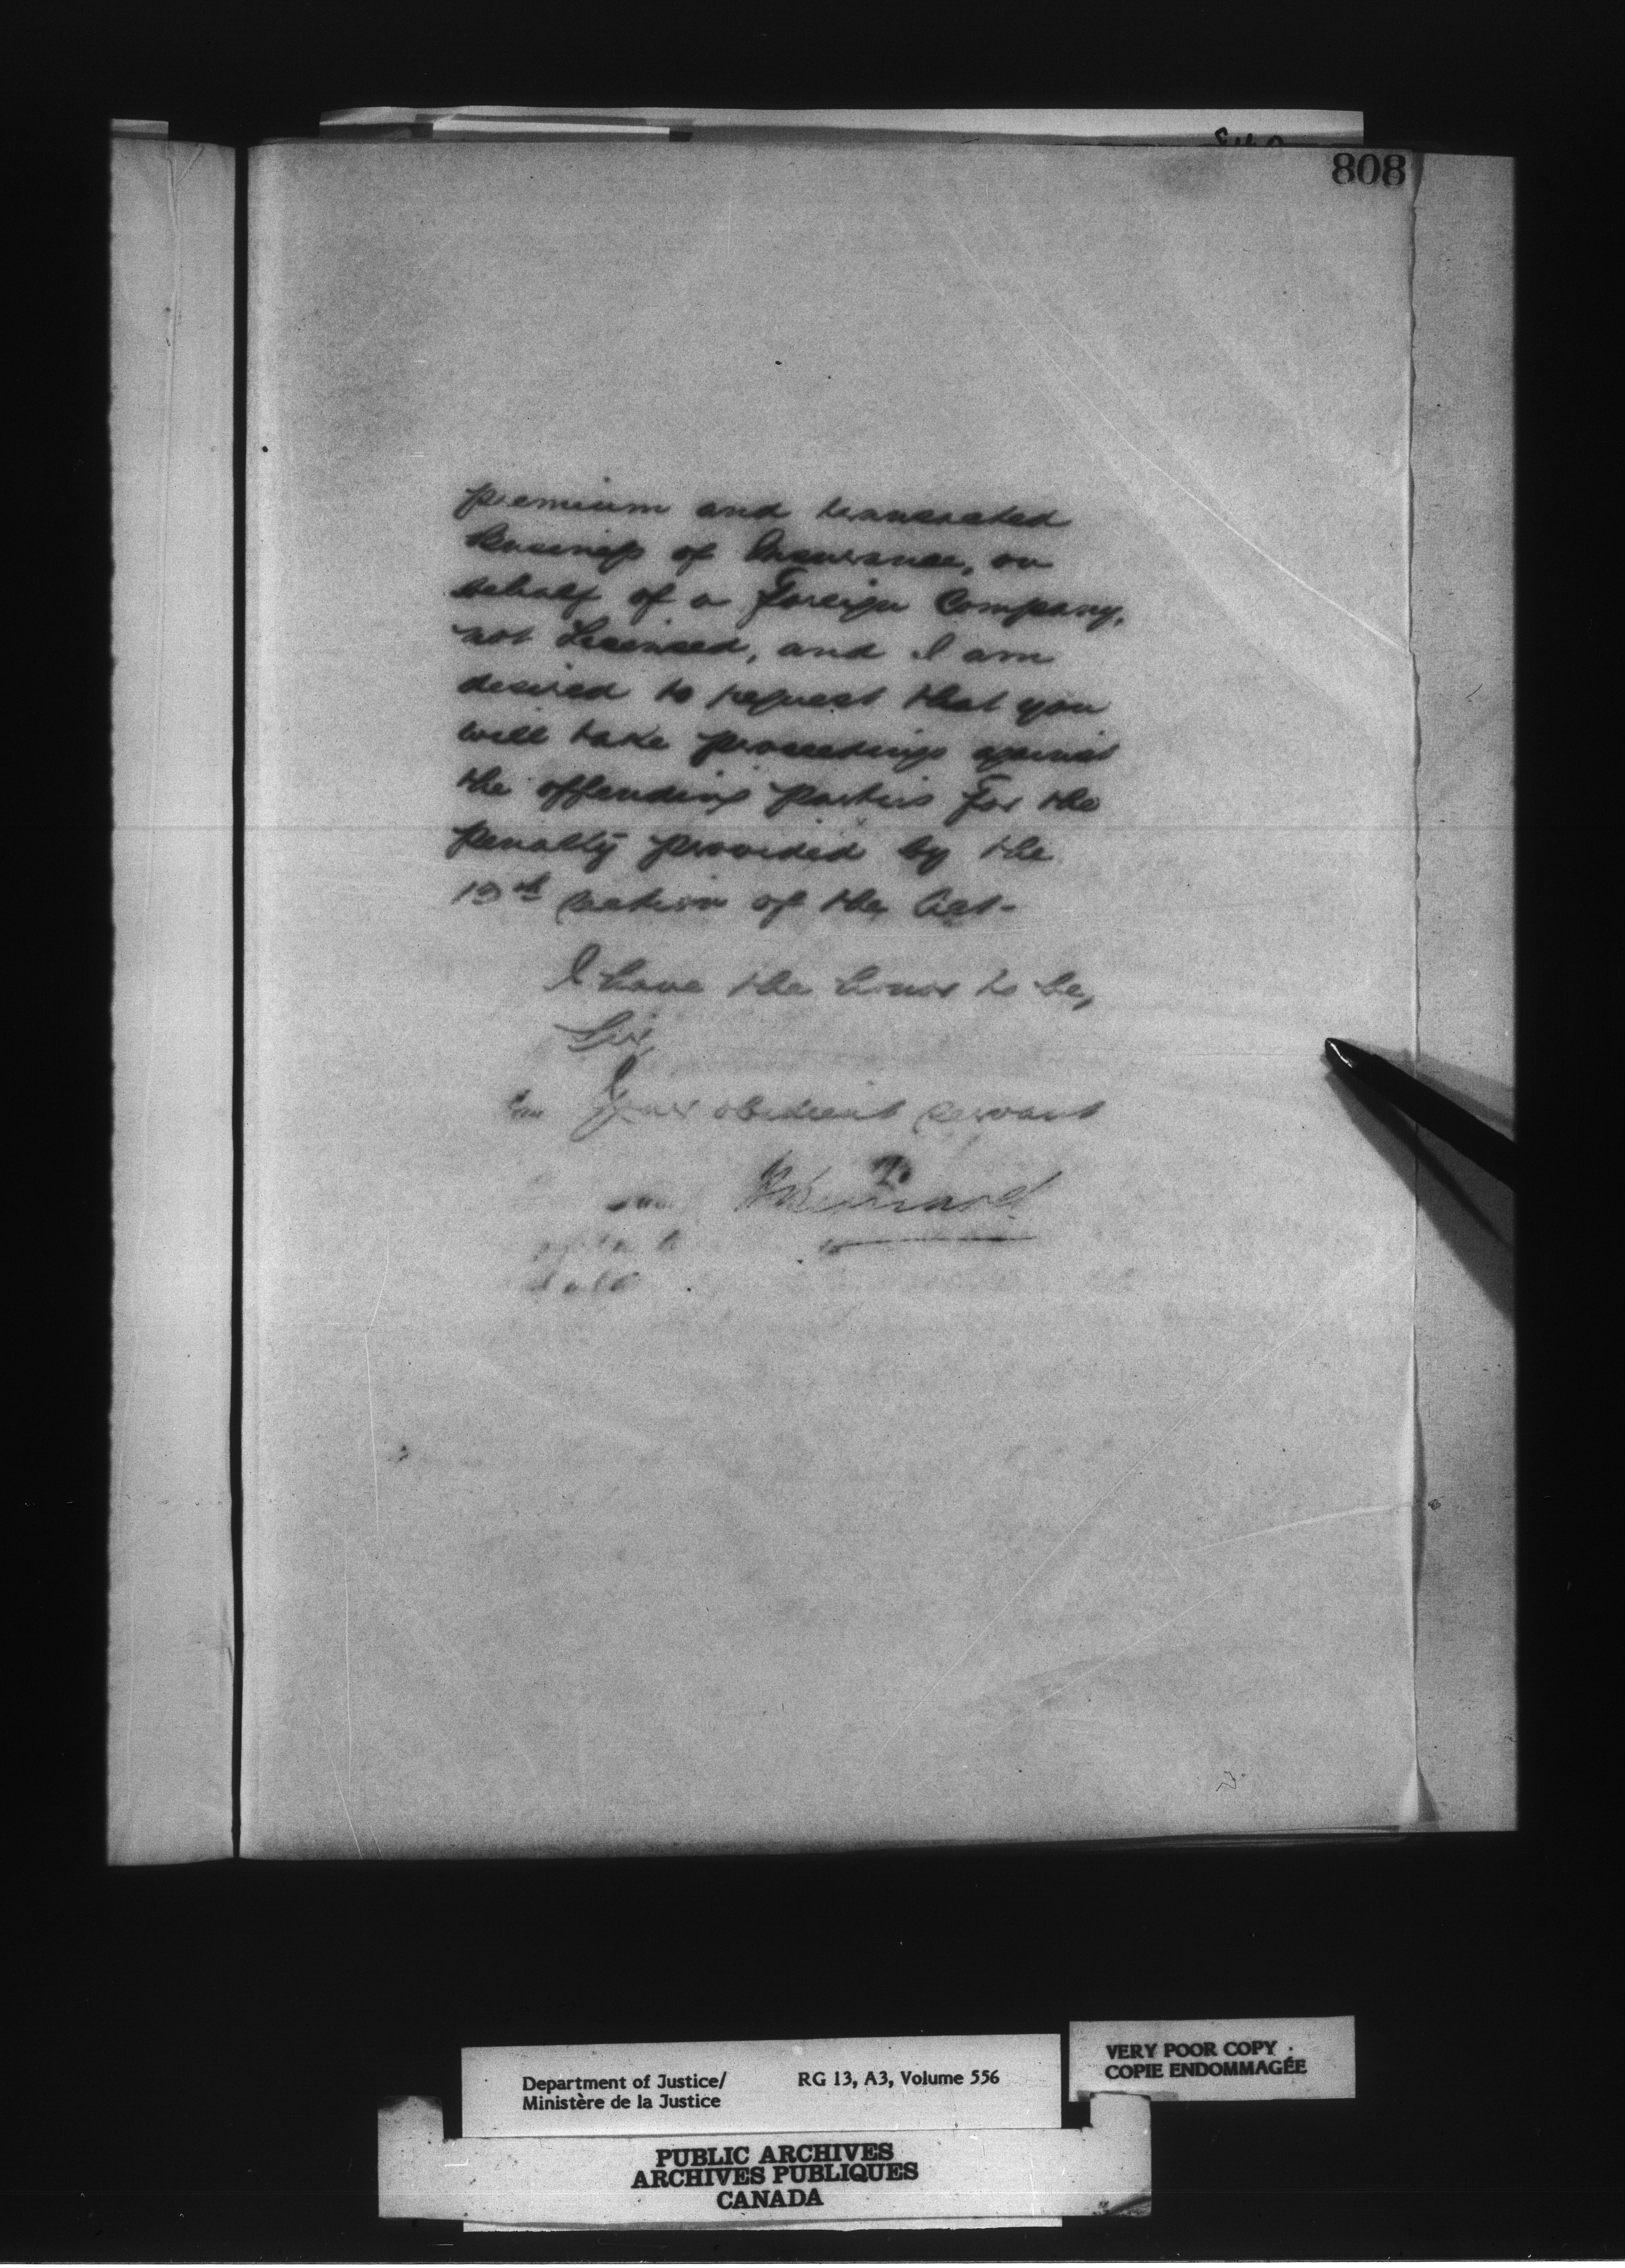 808
premium and transacted
business of Insurance, on
behalf of a Foreign Company,
not Licensed, and I am
desired to request that you
will take proceedings against
the offending parties for the
penalty provided by the
13th section of the Act-
I have the honor to be,
Sir,
Your obedient servant
Department of Justice/ RG 13, A3, Volume 556
Ministère de la Justice
VERY POOR COPY
COPIE ENDOMMAGÉE
PUBLIC ARCHIVES
ARCHIVES PUBLIQUES
CANADA